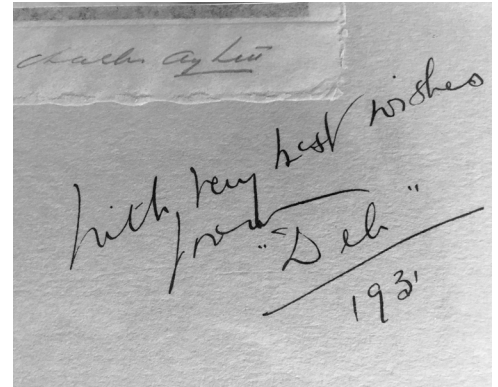 Charles Aylett
with very best wishes
from
"Deb"
1931